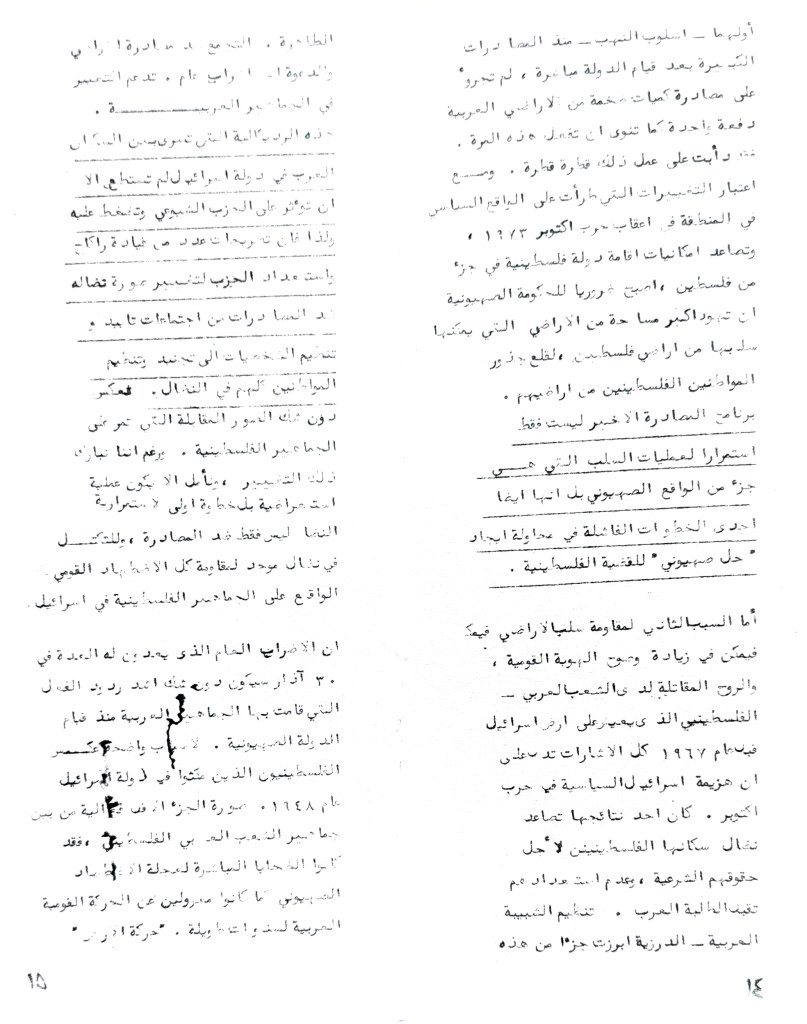 أولهما – اسلوب النهب – منذ المصادرات
الكبيرة بعد قيام الدولة مباشرة ، لم تجروأ
على مصادرة كميات ضخمة من الاراضي العربية
دفعة واحدة كما تنوى ان تفعل هذه المرة .
دأبت على عمل ذلك قطرة قطرة . ومع
اعتبار التغييرات التي طرأت على الواقع السياسي
في المنطقة في اعقاب حرب اكتوبر ١٩٧٣ ،
وتصاعد امكانيات اقامة دولة فلسطينية في جزء
من فلسطين ، اصبح ضروريا للحكومة الصهيونية
ان تهود اكبر مساحة من الاراضي التي يمكنها
سلبها من اراضي فلسطين ، لقلع جذور
المواطنين الفلسطينين من اراضيهم .
برنامج المصادرة الاخير ليست فقط
استمرارا لعمليات السلب التي هي
جزء من الواقع الصهيوني بل انها ايضا
احدى الخطوات الفاشلة في محاولة ايجاد
" حل صهيوني " للقضية الفلسطينية .
أما السبب الثاني لمقاومة سلب الاراضي فيمك
فيمكن في زيادة وضوح الهوية القومية ،
والروح المقاتلة لدى الشعب العربي –
الفلسطيني الذى يعيش على ارض اسرائيل
قبل عام ١٩٦٧ كل الاشارات تدل على
ان هزيمة اسرائيل السياسية في حرب
اكتوبر . كان احد نتائجها تصاعد
نضال سكانها الفلسطينين لأجل
حقوقهم الشرعية ، وبعدم استعداد هم
الطلبة العرب . تنظيم الشبيبة
العربية – الدرزية ابرزت جزءا من هذه
١٤
الظاهرة . التجمع ضد مصادرة اراضي
والدعوة اضراب عام . تدعم التغيير
في الجماهير العربية .
هذه الرديكالية التي تسرى بين السكان
العرب في دولة اسرائيل لم تستطع الا
ان توثر على الحزب الشيوعي وتضغط عليه
ولذا فان تصريحات عدد من قيادة راكاح
واستعداد الحزب لتغيير صورة نضاله
ضد المصادرات من اجتماعات تأييد و
تنظيم الشخصيات الى تجنيد وتنظيم
المواطنين كلهم في النضال . تعكس
دون شك الصور المقابلة التي تمر على
الجماهير الفلسطينية . ورغم اننا نبارك
ذلك التغيير ، ونأمل الا يكون عملية
استعراضية بل خطوة اولى لاستمرارية
النضا ليس فقط ضد المصادرة ، وللتكتل
في نضال موحد لمقاومة كل الاضطهاد القومي
الواقع على الجماهير الفلسطينية في اسرائيل
ان الاضراب العام الذى يعدون له العدة في
٣٠ آذار سيكون دون شك اشد ردود الفعل
التي قامت بها الجماهير العربية منذ قيام
الدولة الصهيونية . لاسباب واضحة
الفلسطينيون الذين مكثوا في دولة اسرائيل
عام ١٩٤٨ صورة الجزء من بين
جماهير الشعب العربي الفلسطيني ، فقد
كانوا الضحايا المباشرة لعجلة الاضطهاد
الصهيوني كما كانوا معزولين عن الحركة القومية
العربية لسنوات طويلة . " حركة الارض "
١٥